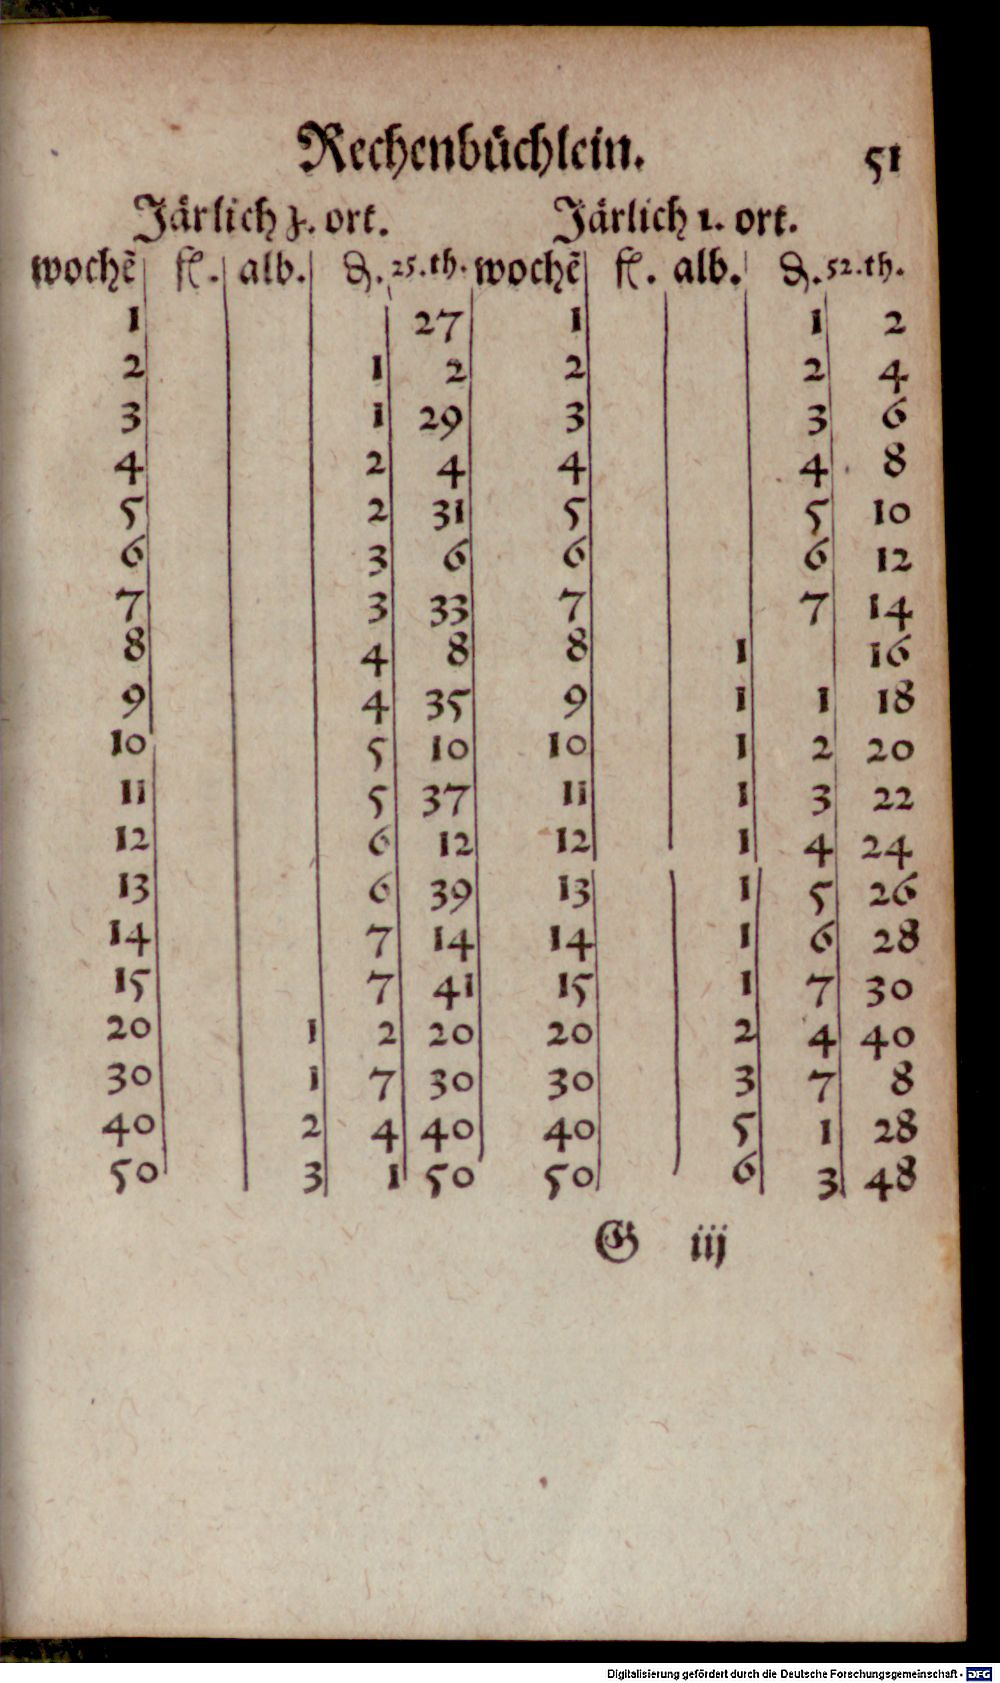 Rechenbüchlein. 51
Järlich ꝫ. ort. Järlich 1. ort.
wochẽ fl. alb. ₰. 25.th. wochẽ fl. alb. ₰. 52.th.
1 27 1 1 2
2 1 2 2 2 4
3 1 29 3 3 6
4 2 4 4 4 8
5 2 31 5 5 10
6 3 6 6 6 12
7 3 33 7 7 14
8 4 8 8 1 16
9 4 35 9 1 1 18
10 5 10 10 1 2 20
11 5 37 11 1 3 22
12 6 12 12 1 4 24
13 6 39 13 1 5 26
14 7 14 14 1 6 28
15 7 41 15 1 7 30
20 1 2 20 20 2 4 40
30 1 7 30 30 3 7 8
40 2 4 40 40 5 1 28
50 3 1 50 50 6 3 48
G iij
Digitalisierung gefördert durch die Deutsche Forschungsgemeinschaft - DFG